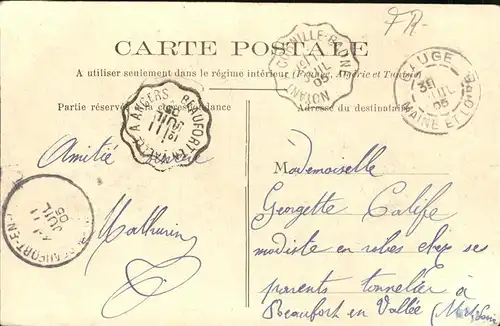 FR-
CARTE POSTALE
A utiliser seulement dans le régime intérieur (France, Algérie et Tunisie)
Partie réservée à la correspondance
Adresse du destinataire
BEAUFORT-EN-VALLÉE A ANGERS
JUIL
05
JUIL
05
NOYANT
BAUGÉ
JUIL
05
MAINE ET LOIRE
BEAUFORT-EN-
11
JUIL
05
Amitié sincère
Mathurin
Mademoiselle
Georgette Calife
modiste en robes chez ses
parents tonnelier à
Beaufort en Vallée